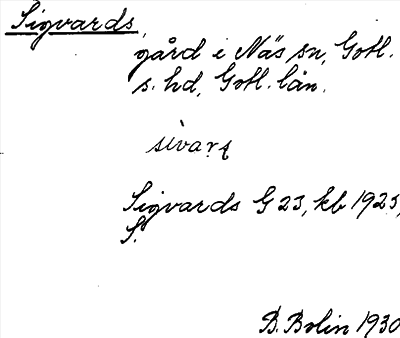 Sigvards,
gård i Näs sn, Gotl.
s. hd, Gotl. län.
Sigvards G 23, kb 1925,
S.
B. Bolin 1930